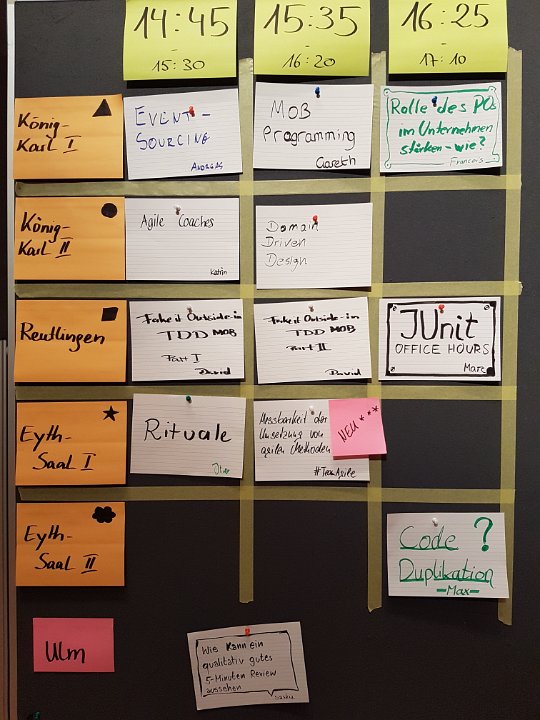 14:45
-
15:30
15:35
-
16:20
16:25
-
17:10
König-
Karl I
EVENT-
SOURCING
ANDREAS
MOB
Programming
Gareth
Rolle des POs
im Unternehmen
stärken - wie?
Francois
König-
Karl II
Agile Coaches
Katrin
Domain
Driven
Design
Reutlingen
Fake it Outside-in
TDD MOB
Part I
David
Fake it Outside-in
TDD MOB
Part II
David
JUnit
OFFICE HOURS
Marc
Eyth-
Saal I
Rituale
Messbarkeit der
Umsetzung von
agilen Methoden
#TeamAgile
NEU***
Eyth-
Saal II
Code ?
Duplikation
-Max-
Ulm
Wie kann ein
qualitativ gutes
5-Minuten Review
aussehen